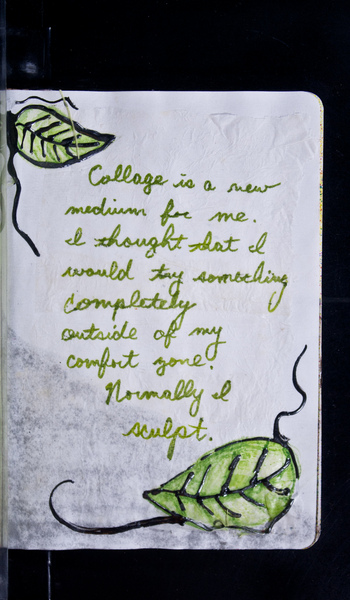 Collage is a new
medium for me.
I thought that I
would try something
completely
outside of my
comfort zone.
Normally I
sculpt.